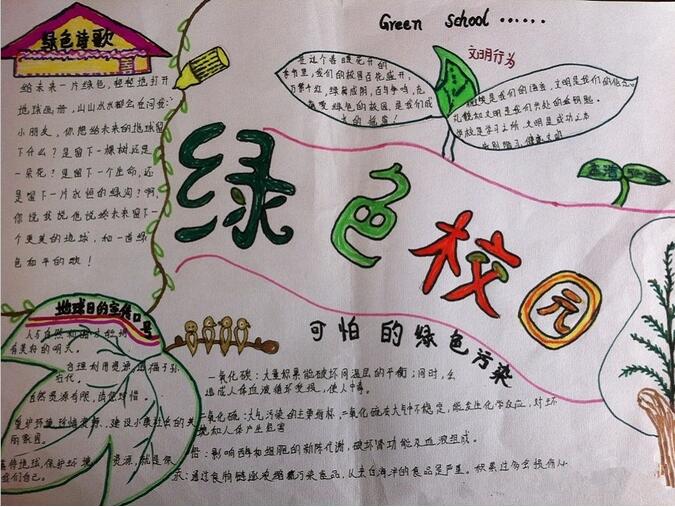 Green School ......
绿色诗歌
给未来一片绿色,轻轻地打开
地球画册,山山水水都会问我:
小朋友,你想给未来的地球留
下什么?是留下一棵树还是
一朵花?是留下一个生命,还
是留下一片永恒的绿洲?啊,
你说我说他说给未来留下一
个更美的地球,和一首绿
色和平的歌!
在这个春暖花开的
季节里,我们的校园百花盛开,
万紫千红,绿树成阴,百鸟争鸣,
绿色的校园,是我们成
文明行为
是我们的语言,文明是我们的信念。
礼貌和文明是我们共处的金钥匙。
学校是学习之所,文明是成功之本
绿色校园
地球日的宣传口号
人与自然
有美好的明天。
合理利用资源,造福子孙
后代。
自然资源有限,
建设小康社会的美
丽家园。
保护环境资源,就是保
我们自己。
可怕的绿色污染
一氧化碳:大量积累能破坏同温层的平衡;同时,会
造成人体血液循环受损,使人中毒。
二氧化硫:大气污染的主要指标,二氧化硫在大气中不稳定,能发生化学反应,对环
境和人体产生危害
铅:影响酶和细胞的新陈代谢,破坏肾功能及血液组成。
汞:通过食物链逐渐积聚污染食品,从来自海洋的食品更严重。积累过多会损伤人